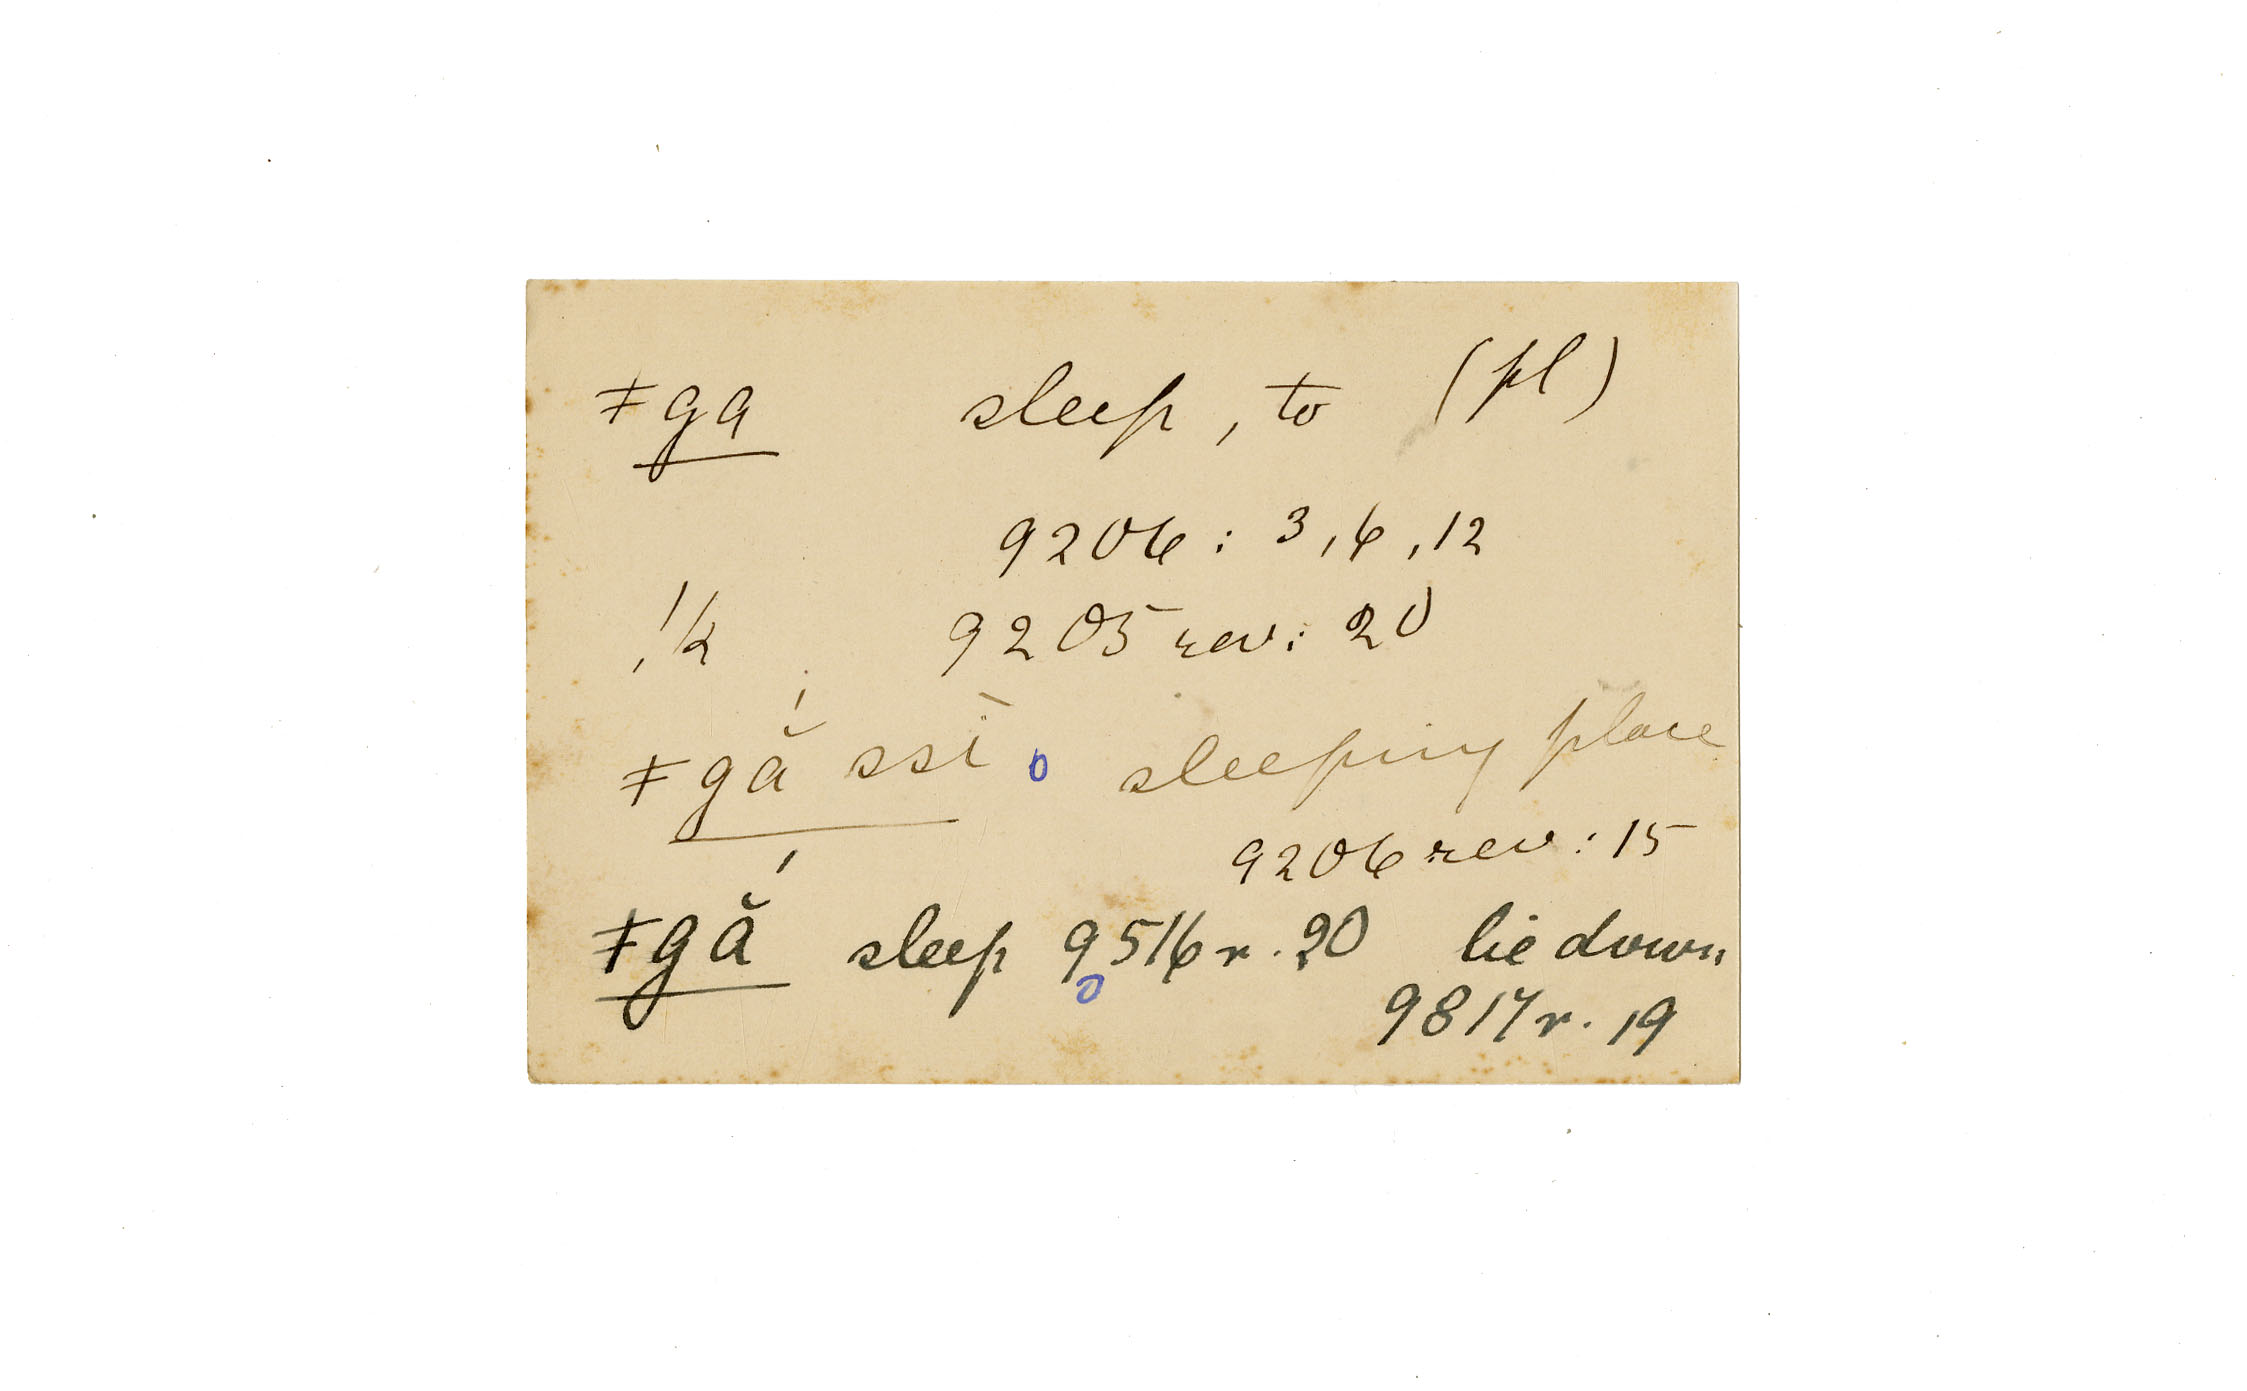 ǂga sleep, to (pl)
9206 : 3, 6, 12
!k 9205 rev: 20
ǂgắ ssī sleeping place
9206 rev: 15
ǂgắ sleep 9516 r. 20 lie down
9817 r. 19